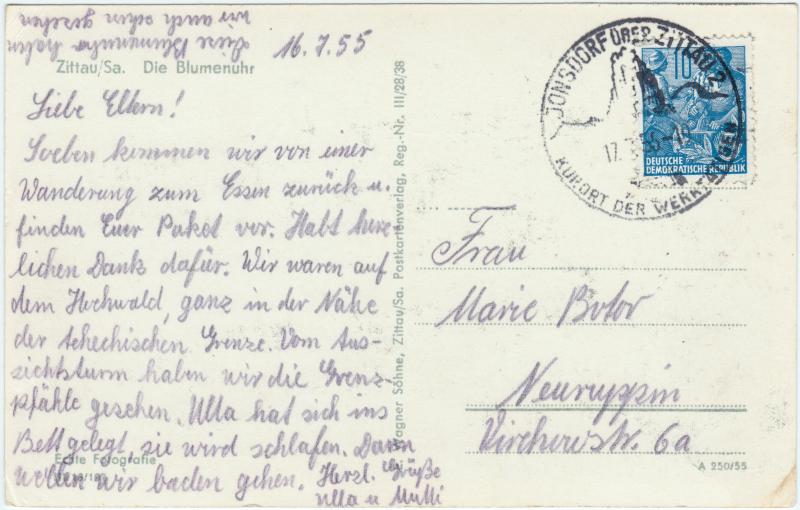 Diese Blumenuhr haben
wir auch schon gesehen
16.7.55
Zittau/Sa. Die Blumenuhr
Liebe Eltern!
Soeben kommen wir von einer
Wanderung zum Essen zurück u.
finden Euer Paket vor. Habt herz-
lichen Dank dafür. Wir waren auf
dem Hochwald, ganz in der Nähe
der tchechischen Grenze. Vom Aus-
sichtsturm haben wir die Grenz-
pfähle gesehen. Ulla hat sich ins
Bett gelegt, sie wird schlafen. Dann
wollen wir baden gehen. Herzl. Grüße
Ulla u Mutti
Echte Fotografie
Wagner Söhne, Zittau/Sa. Postkartenverlag, Reg.-Nr. III/28/38
JONSDORF ÜBER ZITTAU 2
17.
KURORT DER WERKTÄTIGEN
10
DEUTSCHE
DEMOKRATISCHE REPUBLIK
Frau
Marie
Neuruppin
Virchowstr. 6a
A 250/55